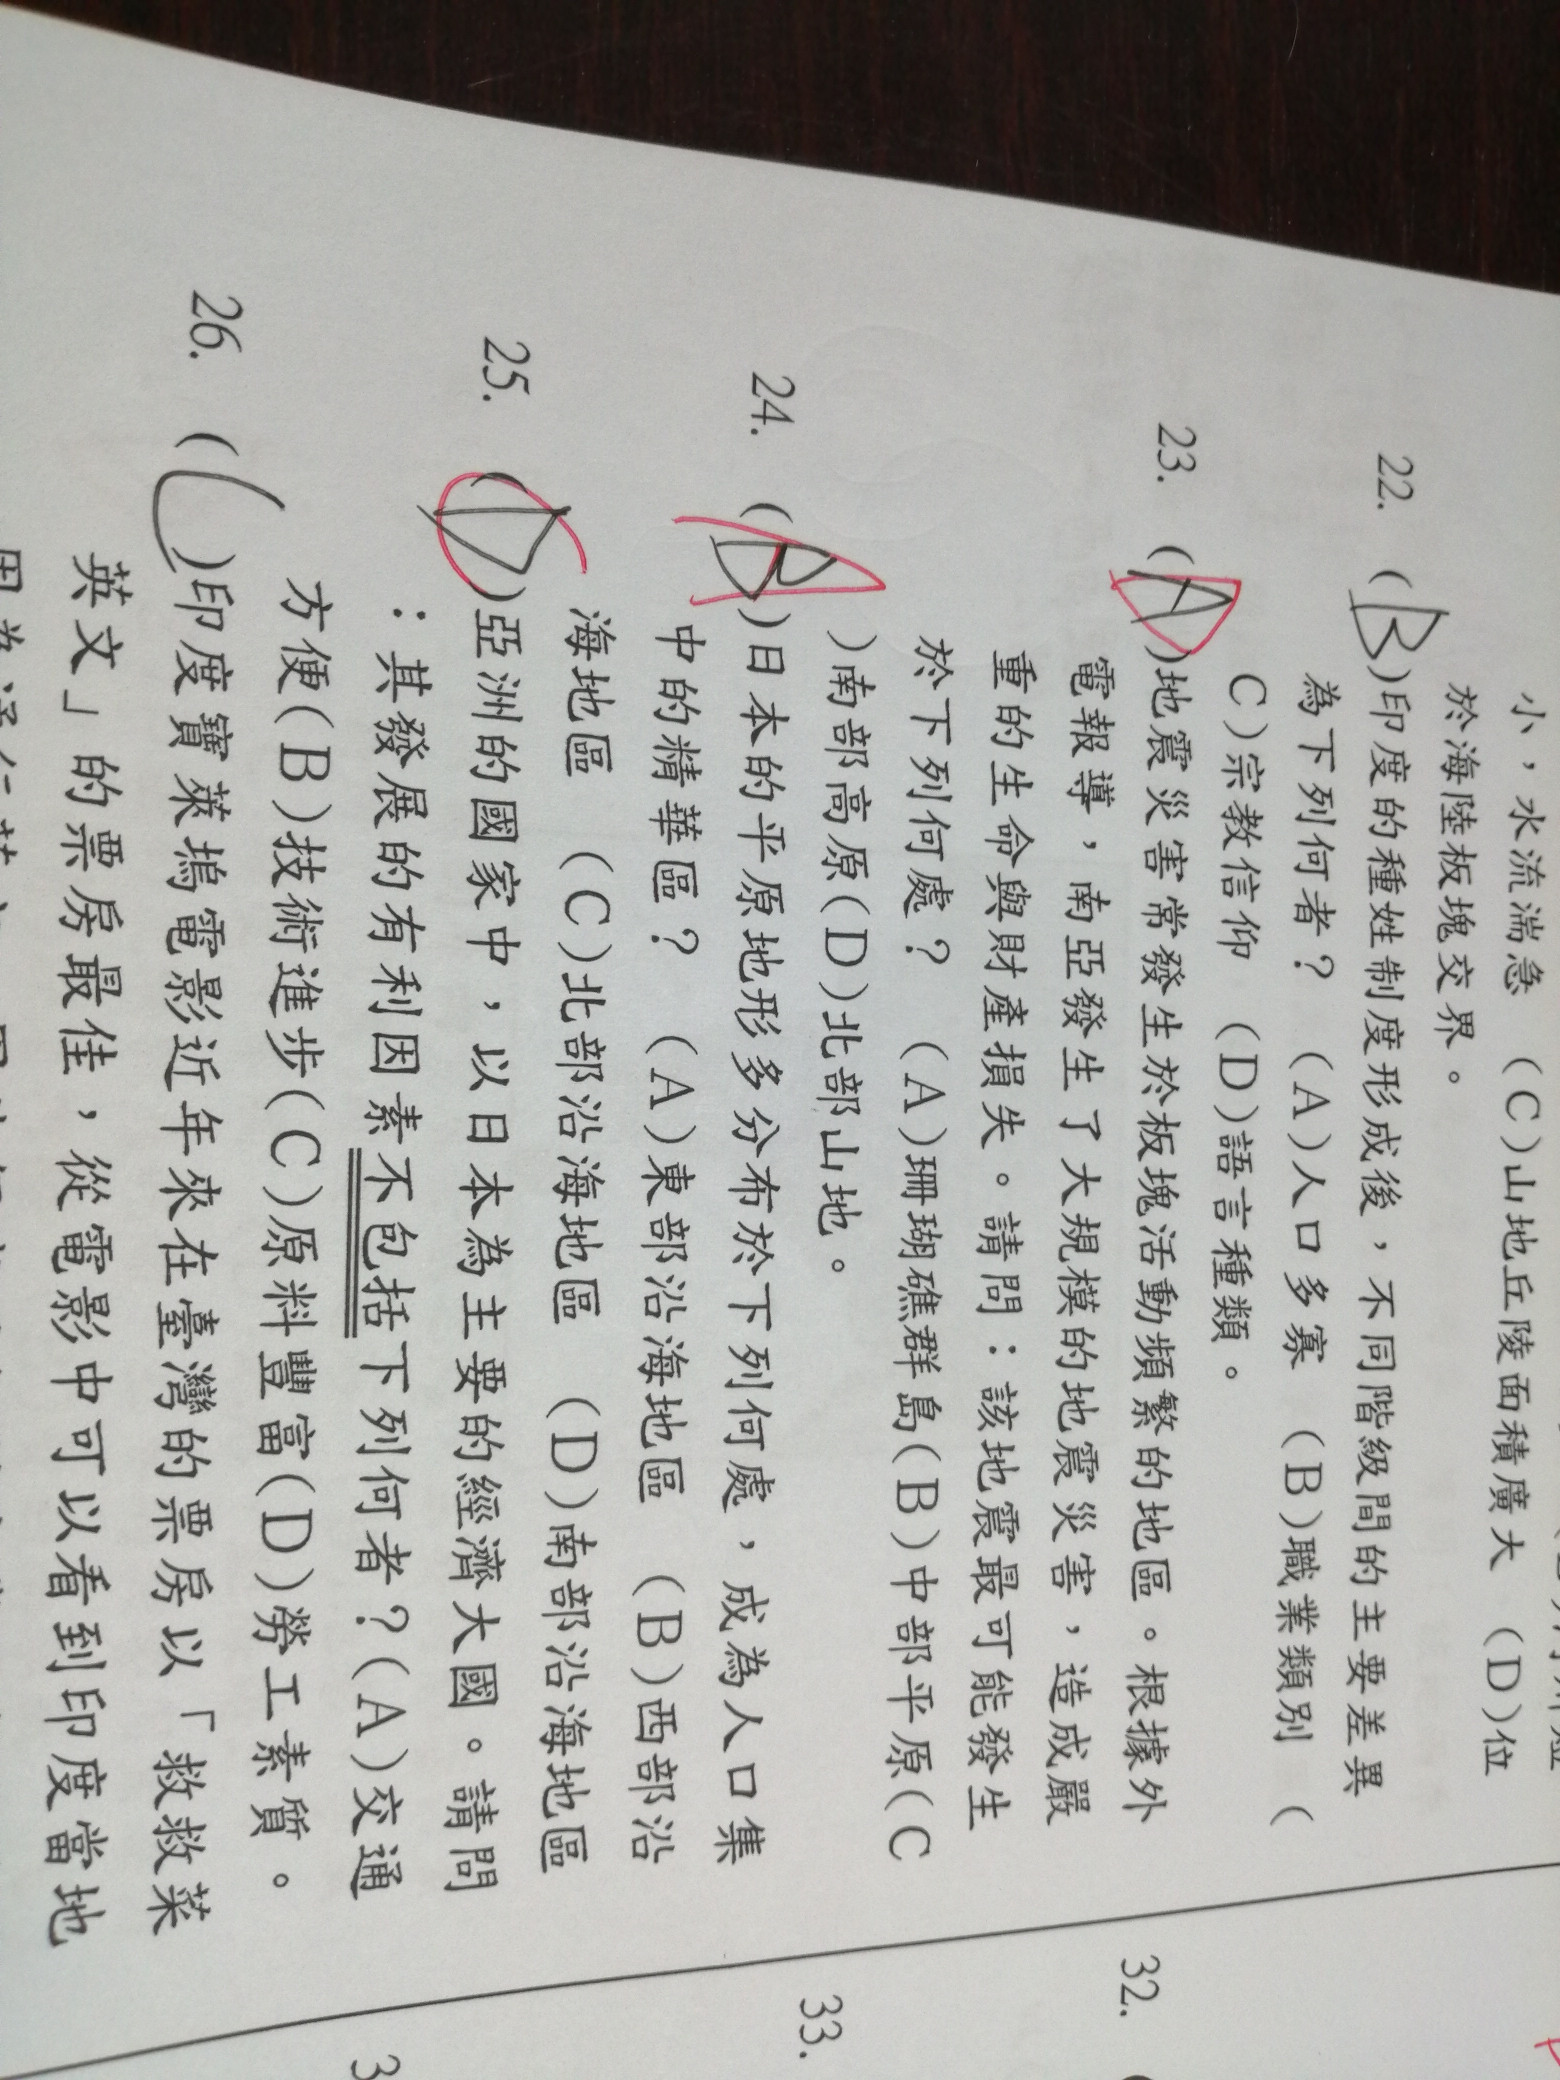 小，水流湍急 (C)山地丘陵面積廣大 (D)位
於海陸板塊交界。
22. (B)印度的種姓制度形成後，不同階級間的主要差異
為下列何者？ (A)人口多寡 (B)職業類別 (
C)宗教信仰 (D)語言種類。
23. (A)地震災害常發生於板塊活動頻繁的地區。根據外
電報導，南亞發生了大規模的地震災害，造成嚴
重的生命與財產損失。請問：該地震最可能發生
於下列何處？ (A)珊瑚礁群島(B)中部平原(C
)南部高原(D)北部山地。
24. (B)日本的平原地形多分布於下列何處，成為人口集
中的精華區？ (A)東部沿海地區 (B)西部沿
海地區 (C)北部沿海地區 (D)南部沿海地區
25. (D)亞洲的國家中，以日本為主要的經濟大國。請問
：其發展的有利因素不包括下列何者？(A)交通
方便(B)技術進步(C)原料豐富(D)勞工素質。
26. (C)印度寶萊塢電影近年來在臺灣的票房以「救救菜
英文」的票房最佳，從電影中可以看到印度當地
32.
33.